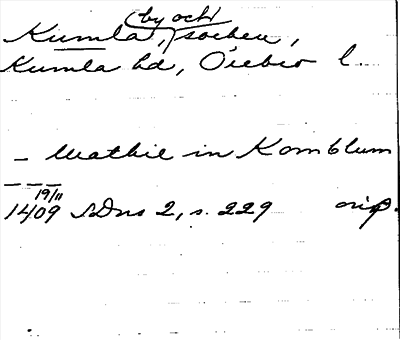 by och
Kumla, socken,
Kumla hd, Örebro l.
— Mathie in Komblum
— — —
19/11
1409 SDns 2, s. 229 orig.